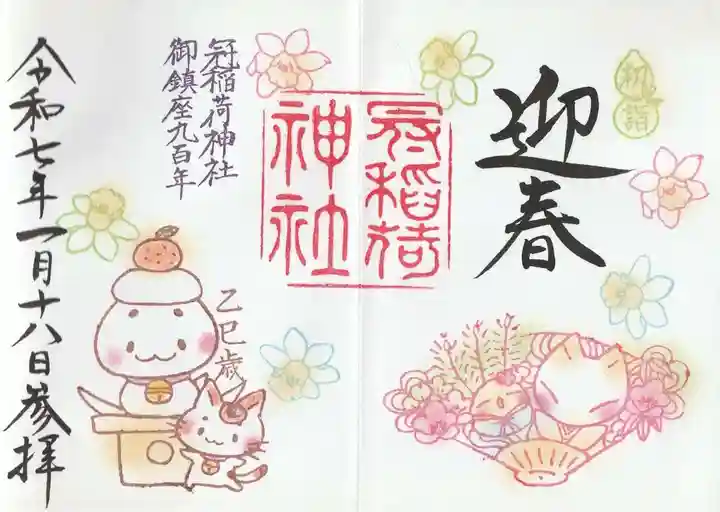 初詣
迎春
冠稲荷
神社
冠稲荷神社
御鎮座九百年
乙巳歳
令和七年一月十八日参拝